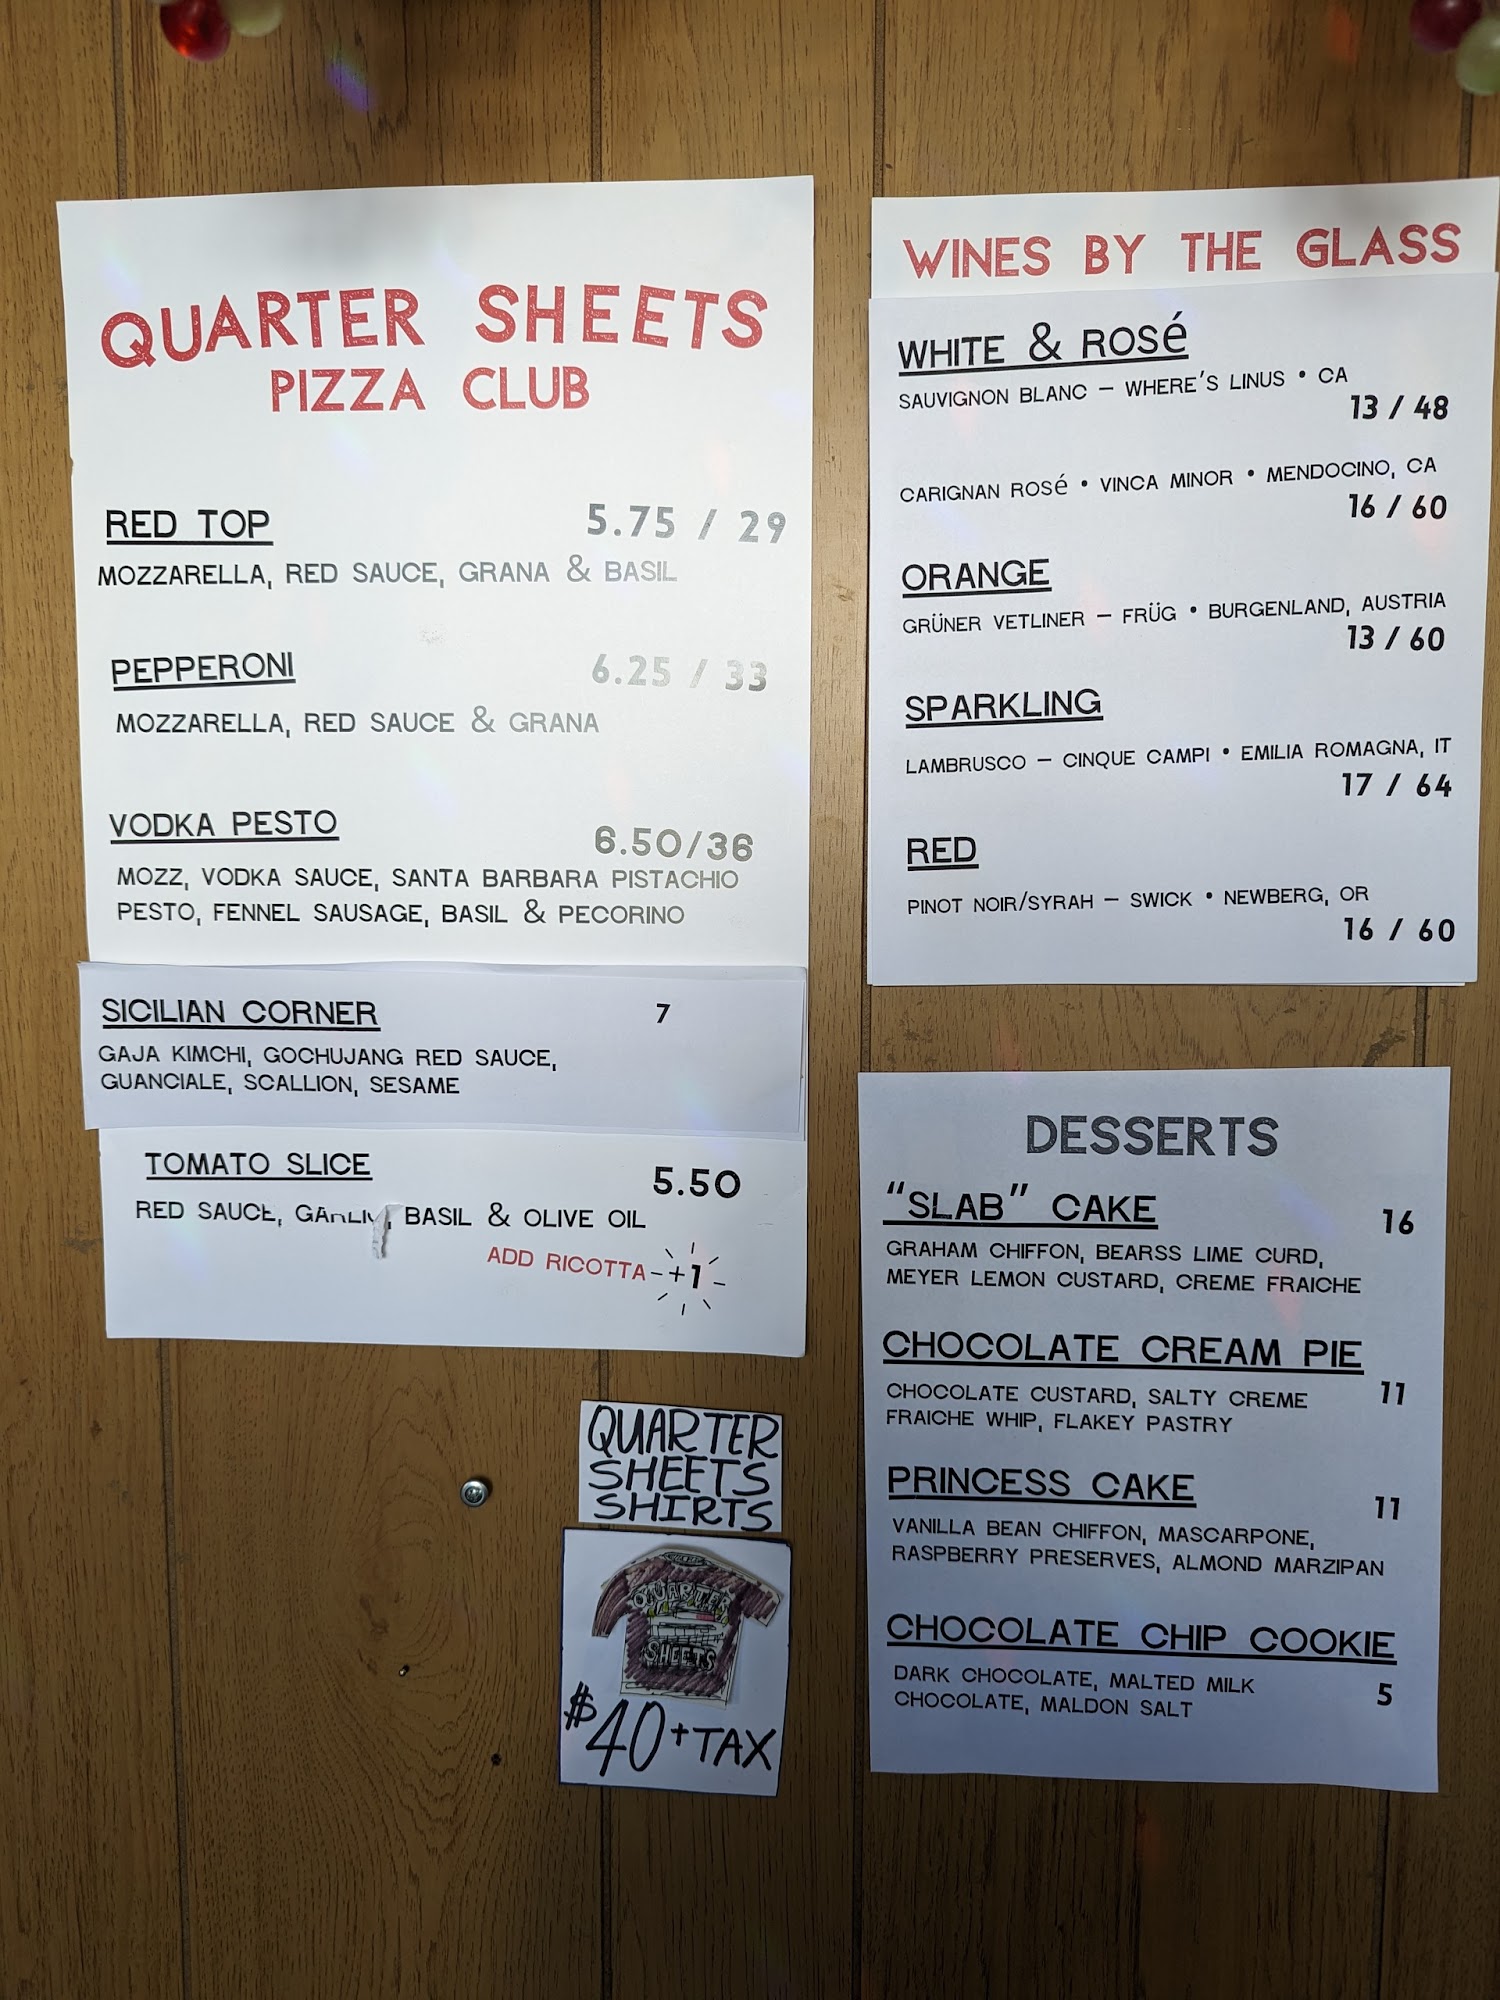 QUARTER SHEETS
PIZZA CLUB
RED TOP 5.75 / 29
MOZZARELLA, RED SAUCE, GRANA & BASIL
PEPPERONI 6.25 / 33
MOZZARELLA, RED SAUCE & GRANA
VODKA PESTO 6.50/36
MOZZ, VODKA SAUCE, SANTA BARBARA PISTACHIO
PESTO, FENNEL SAUSAGE, BASIL & PECORINO
SICILIAN CORNER 7
GAJA KIMCHI, GOCHUJANG RED SAUCE,
GUANCIALE, SCALLION, SESAME
TOMATO SLICE 5.50
RED SAUCE, GARLIC, BASIL & OLIVE OIL
ADD RICOTTA - +1
QUARTER
SHEETS
SHIRTS
QUARTER
SHEETS
$40 + TAX
WINES BY THE GLASS
WHITE & ROSé
SAUVIGNON BLANC – WHERE'S LINUS • CA
13 / 48
CARIGNAN ROSé • VINCA MINOR • MENDOCINO, CA
16 / 60
ORANGE
GRÜNER VETLINER – FRÜG • BURGENLAND, AUSTRIA
13 / 60
SPARKLING
LAMBRUSCO – CINQUE CAMPI • EMILIA ROMAGNA, IT
17 / 64
RED
PINOT NOIR/SYRAH – SWICK • NEWBERG, OR
16 / 60
DESSERTS
“SLAB” CAKE 16
GRAHAM CHIFFON, BEARSS LIME CURD,
MEYER LEMON CUSTARD, CREME FRAICHE
CHOCOLATE CREAM PIE 11
CHOCOLATE CUSTARD, SALTY CREME
FRAICHE WHIP, FLAKEY PASTRY
PRINCESS CAKE 11
VANILLA BEAN CHIFFON, MASCARPONE,
RASPBERRY PRESERVES, ALMOND MARZIPAN
CHOCOLATE CHIP COOKIE 5
DARK CHOCOLATE, MALTED MILK
CHOCOLATE, MALDON SALT